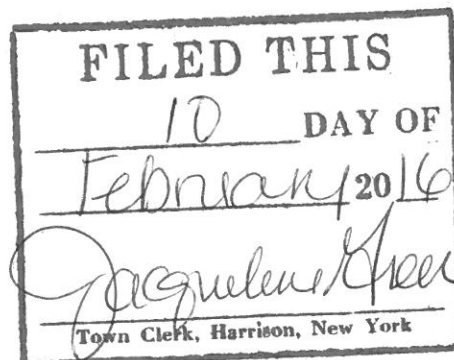 FILED THIS
10 DAY OF
February 2016
Jacqueline Greer
Town Clerk, Harrison, New York